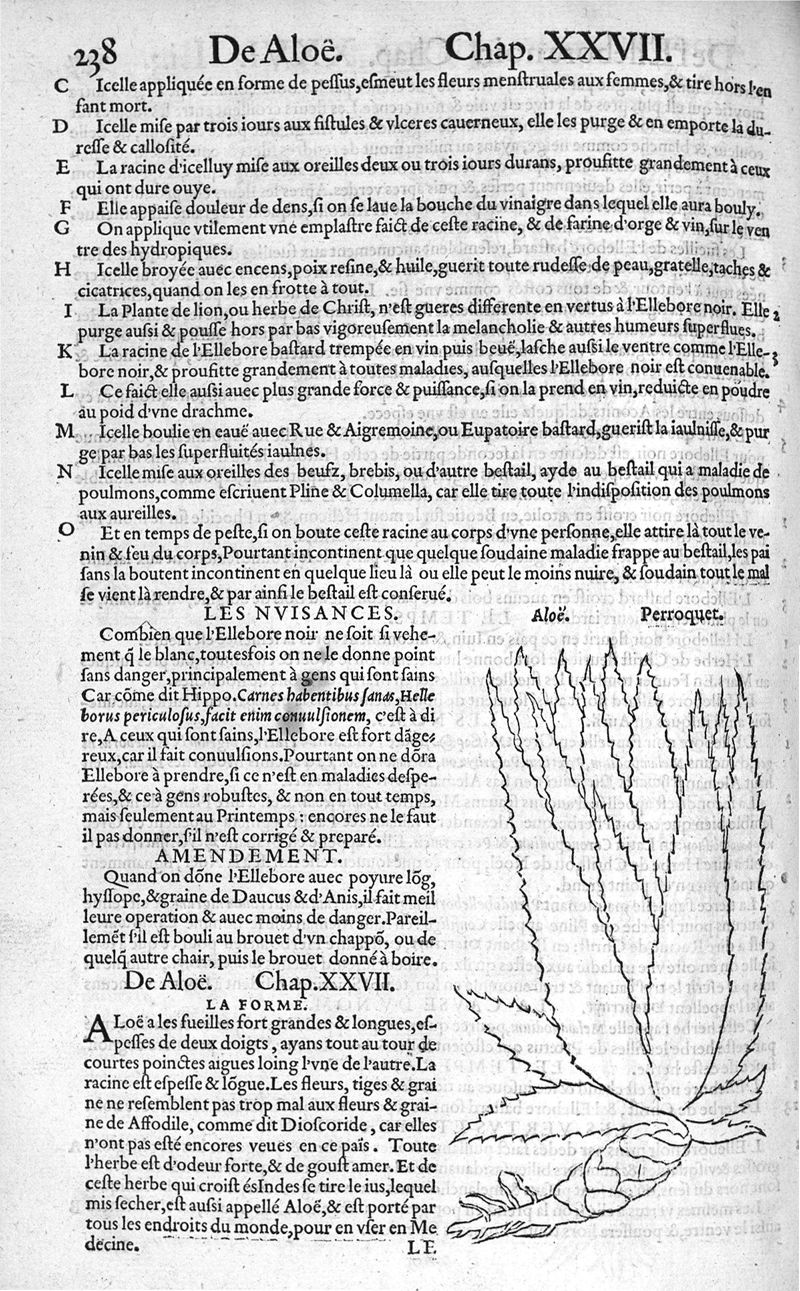 238 De Aloë. Chap. XXVII.
C Icelle appliquée en forme de pessus,esmeut les fleurs menstruales aux femmes,& tire hors l'en
fant mort.
D Icelle mise par trois iours aux fistules & vlceres cauerneux, elle les purge & en emporte la du-
resse & callosité.
E La racine d'icelluy mise aux oreilles deux ou trois iours durans, proufitte grandement à ceux
qui ont dure ouye.
F Elle appaise douleur de dens,si on se laue la bouche du vinaigre dans lequel elle aura bouly.
G On applique vtilement vne emplastre faict de ceste racine, & de farine d'orge & vin,sur le ven
tre des hydropiques.
H Icelle broyée auec encens,poix resine,& huile,guerit toute rudesse de peau,gratelle,taches &
cicatrices,quand on les en frotte à tout.
I La Plante de lion,ou herbe de Christ, n'est gueres differente en vertus à l'Ellebore noir. Elle
purge aussi & pousse hors par bas vigoreusement la melancholie & autres humeurs superflues.
K La racine de l'Ellebore bastard trempée en vin puis beuë,lasche aussi le ventre comme l'Elle-
bore noir,& proufitte grandement à toutes maladies, ausquelles l'Ellebore noir est conuenable.
L Ce faict elle aussi auec plus grande force & puissance,si on la prend en vin,reduicte en poudre
au poid d'vne drachme.
M Icelle boulie en eauë auec Rue & Aigremoine,ou Eupatoire bastard,guerist la iaulnisse,& pur
ge par bas les superfluités iaulnes.
N Icelle mise aux oreilles des beufz, brebis, ou d'autre bestail, ayde au bestail qui a maladie de
poulmons,comme escriuent Pline & Columella, car elle tire toute l'indisposition des poulmons
aux aureilles.
O Et en temps de peste,si on boute ceste racine au corps d'vne personne,elle attire là tout le ve-
nin & feu du corps,Pourtant incontinent que quelque soudaine maladie frappe au bestail,les pai
sans la boutent incontinent en quelque lieu là ou elle peut le moins nuire, & soudain tout le mal
se vient là rendre,& par ainsi le bestail est conserué.
LES NVISANCES.
Combien que l'Ellebore noir ne soit si vehe-
ment q̃ le blanc,toutesfois on ne le donne point
sans danger,principalement à gens qui sont sains
Car cõme dit Hippo.Carnes habentibus sanas,Helle
borus periculosus,facit enim conuulsionem, c'est à di
re,A ceux qui sont sains,l'Ellebore est fort dãge-
reux,car il fait conuulsions.Pourtant on ne dõra
Ellebore à prendre,si ce n'est en maladies despe-
rées,& ce à gens robustes, & non en tout temps,
mais seulement au Printemps : encores ne le faut
il pas donner,s'il n'est corrigé & preparé.
AMENDEMENT.
Quand on dõne l'Ellebore auec poyure lõg,
hyssope,&graine de Daucus &d'Anis,il fait meil
leure operation & auec moins de danger.Pareil-
lemẽt s'il est bouli au brouet d'vn chappõ, ou de
quelq̃ autre chair, puis le brouet donné à boire.
De Aloë. Chap.XXVII.
LA FORME.
ALoë a les fueilles fort grandes & longues,es-
pesses de deux doigts, ayans tout au tour de
courtes poinctes aigues loing l'vne de l'autre.La
racine est espesse & lõgue.Les fleurs, tiges & grai
ne ne resemblent pas trop mal aux fleurs & grai-
ne de Affodile, comme dit Dioscoride, car elles
n'ont pas esté encores veues en ce païs. Toute
l'herbe est d'odeur forte,& de goust amer. Et de
ceste herbe qui croist ésIndes se tire le ius,lequel
mis secher,est aussi appellé Aloë,& est porté par
tous les endroits du monde,pour en vser en Me
decine.
LE
Aloë. Perroquet.